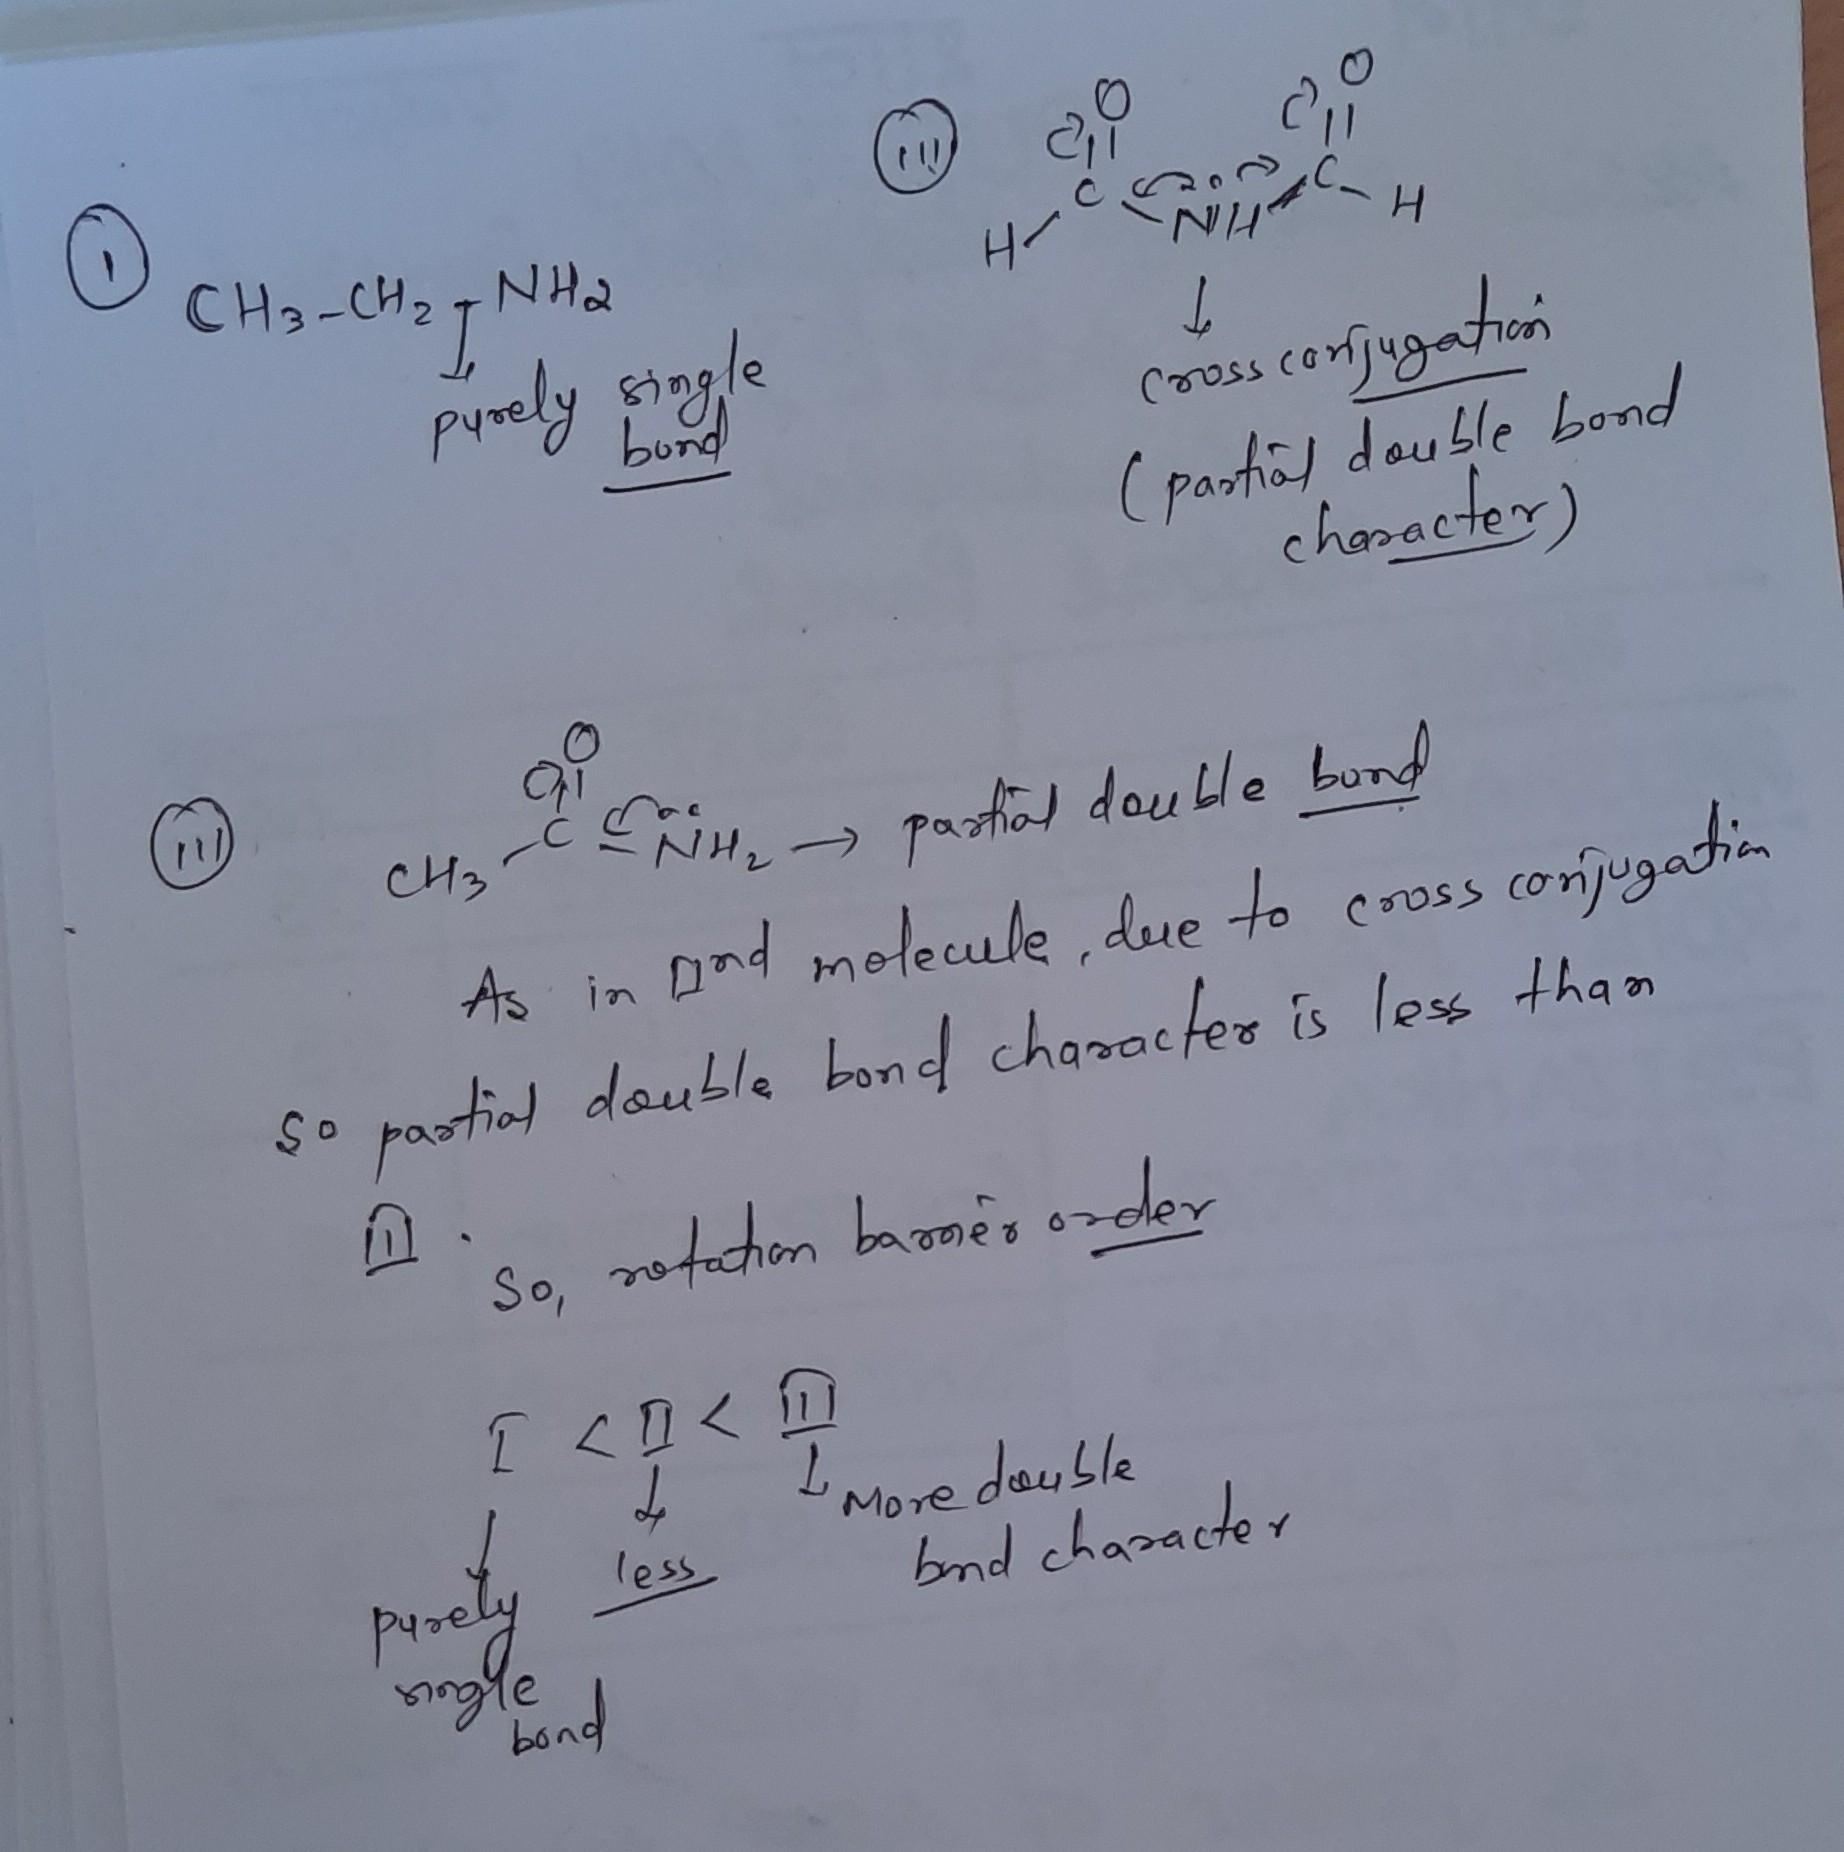 I
CH3-CH2-NH2
↓
purely single
bond
III
O O
|| ||
C C
H NH H
↓
cross conjugation
(partial double bond
character)
III
O
||
CH3 C NH2 → partial double bond
As in IInd molecule, due to cross conjugation
so partial double bond character is less than
III.
So, rotation barrier order
I < II < III
↓ ↓ ↓
More double
bond character
less
purely
single
bond